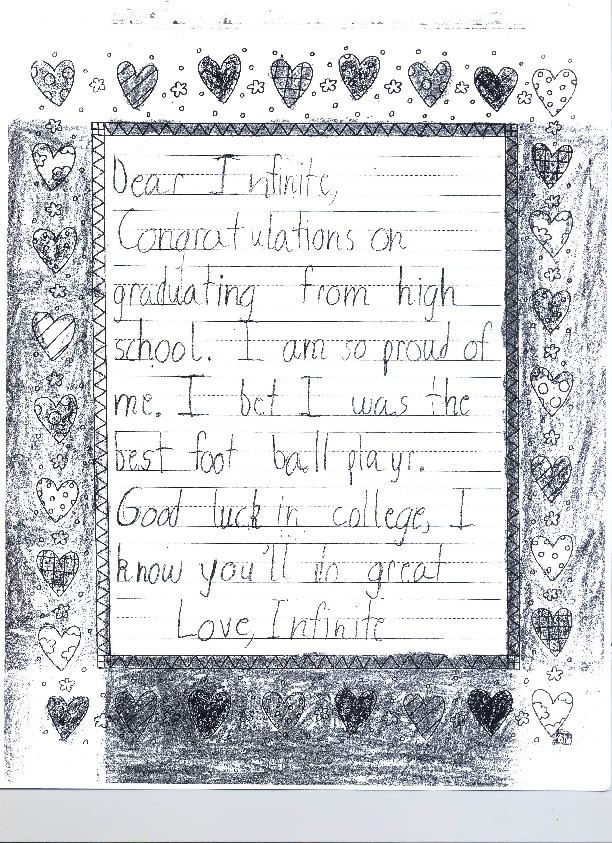 Dear Infinite,
Congratulations on
graduating from high
school. I am so proud of
me. I bet I was the
best foot ball playr.
Good luck in college, I
know you'll do great
Love, Infinite